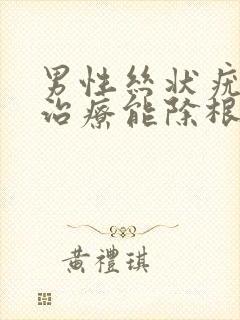 男性絲狀疣
治療能除根
黃禮琪